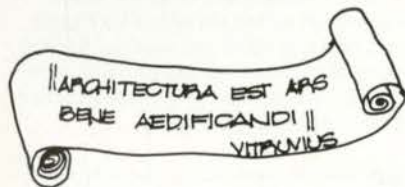 "ARCHITECTURA EST ARS
BENE AEDIFICANDI"
VITRUVIUS